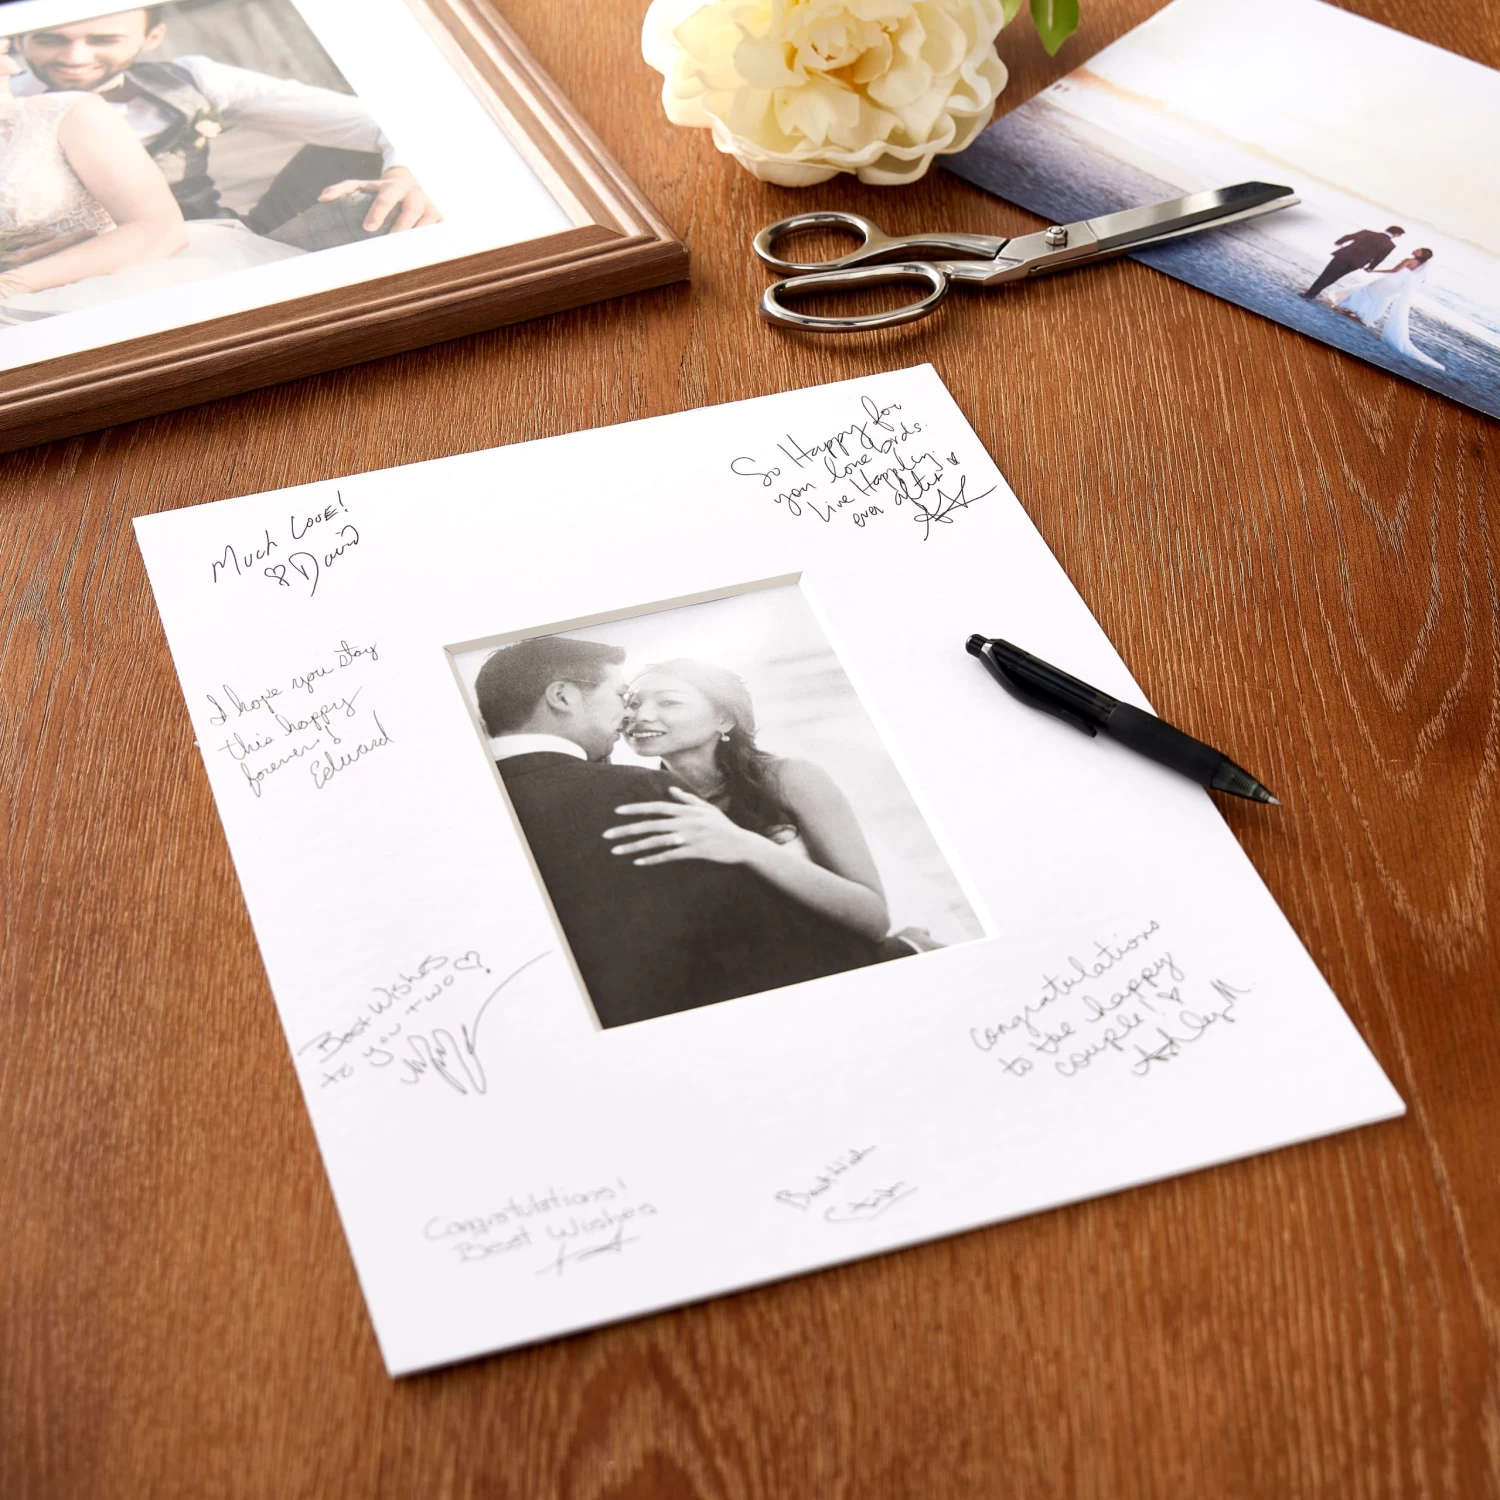 Much Love!
♡David
So Happy for
you love birds.
Live Happily
ever after
I hope you stay
this happy
forever!
Edward
Best Wishes
to you two ♡!
Congratulations
to the happy
couple! ♡
Ashley M.
Congratulations!
Best Wishes
Best Wish